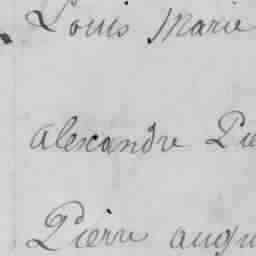 Louis Marie
alexandre Pie
Pierre augu